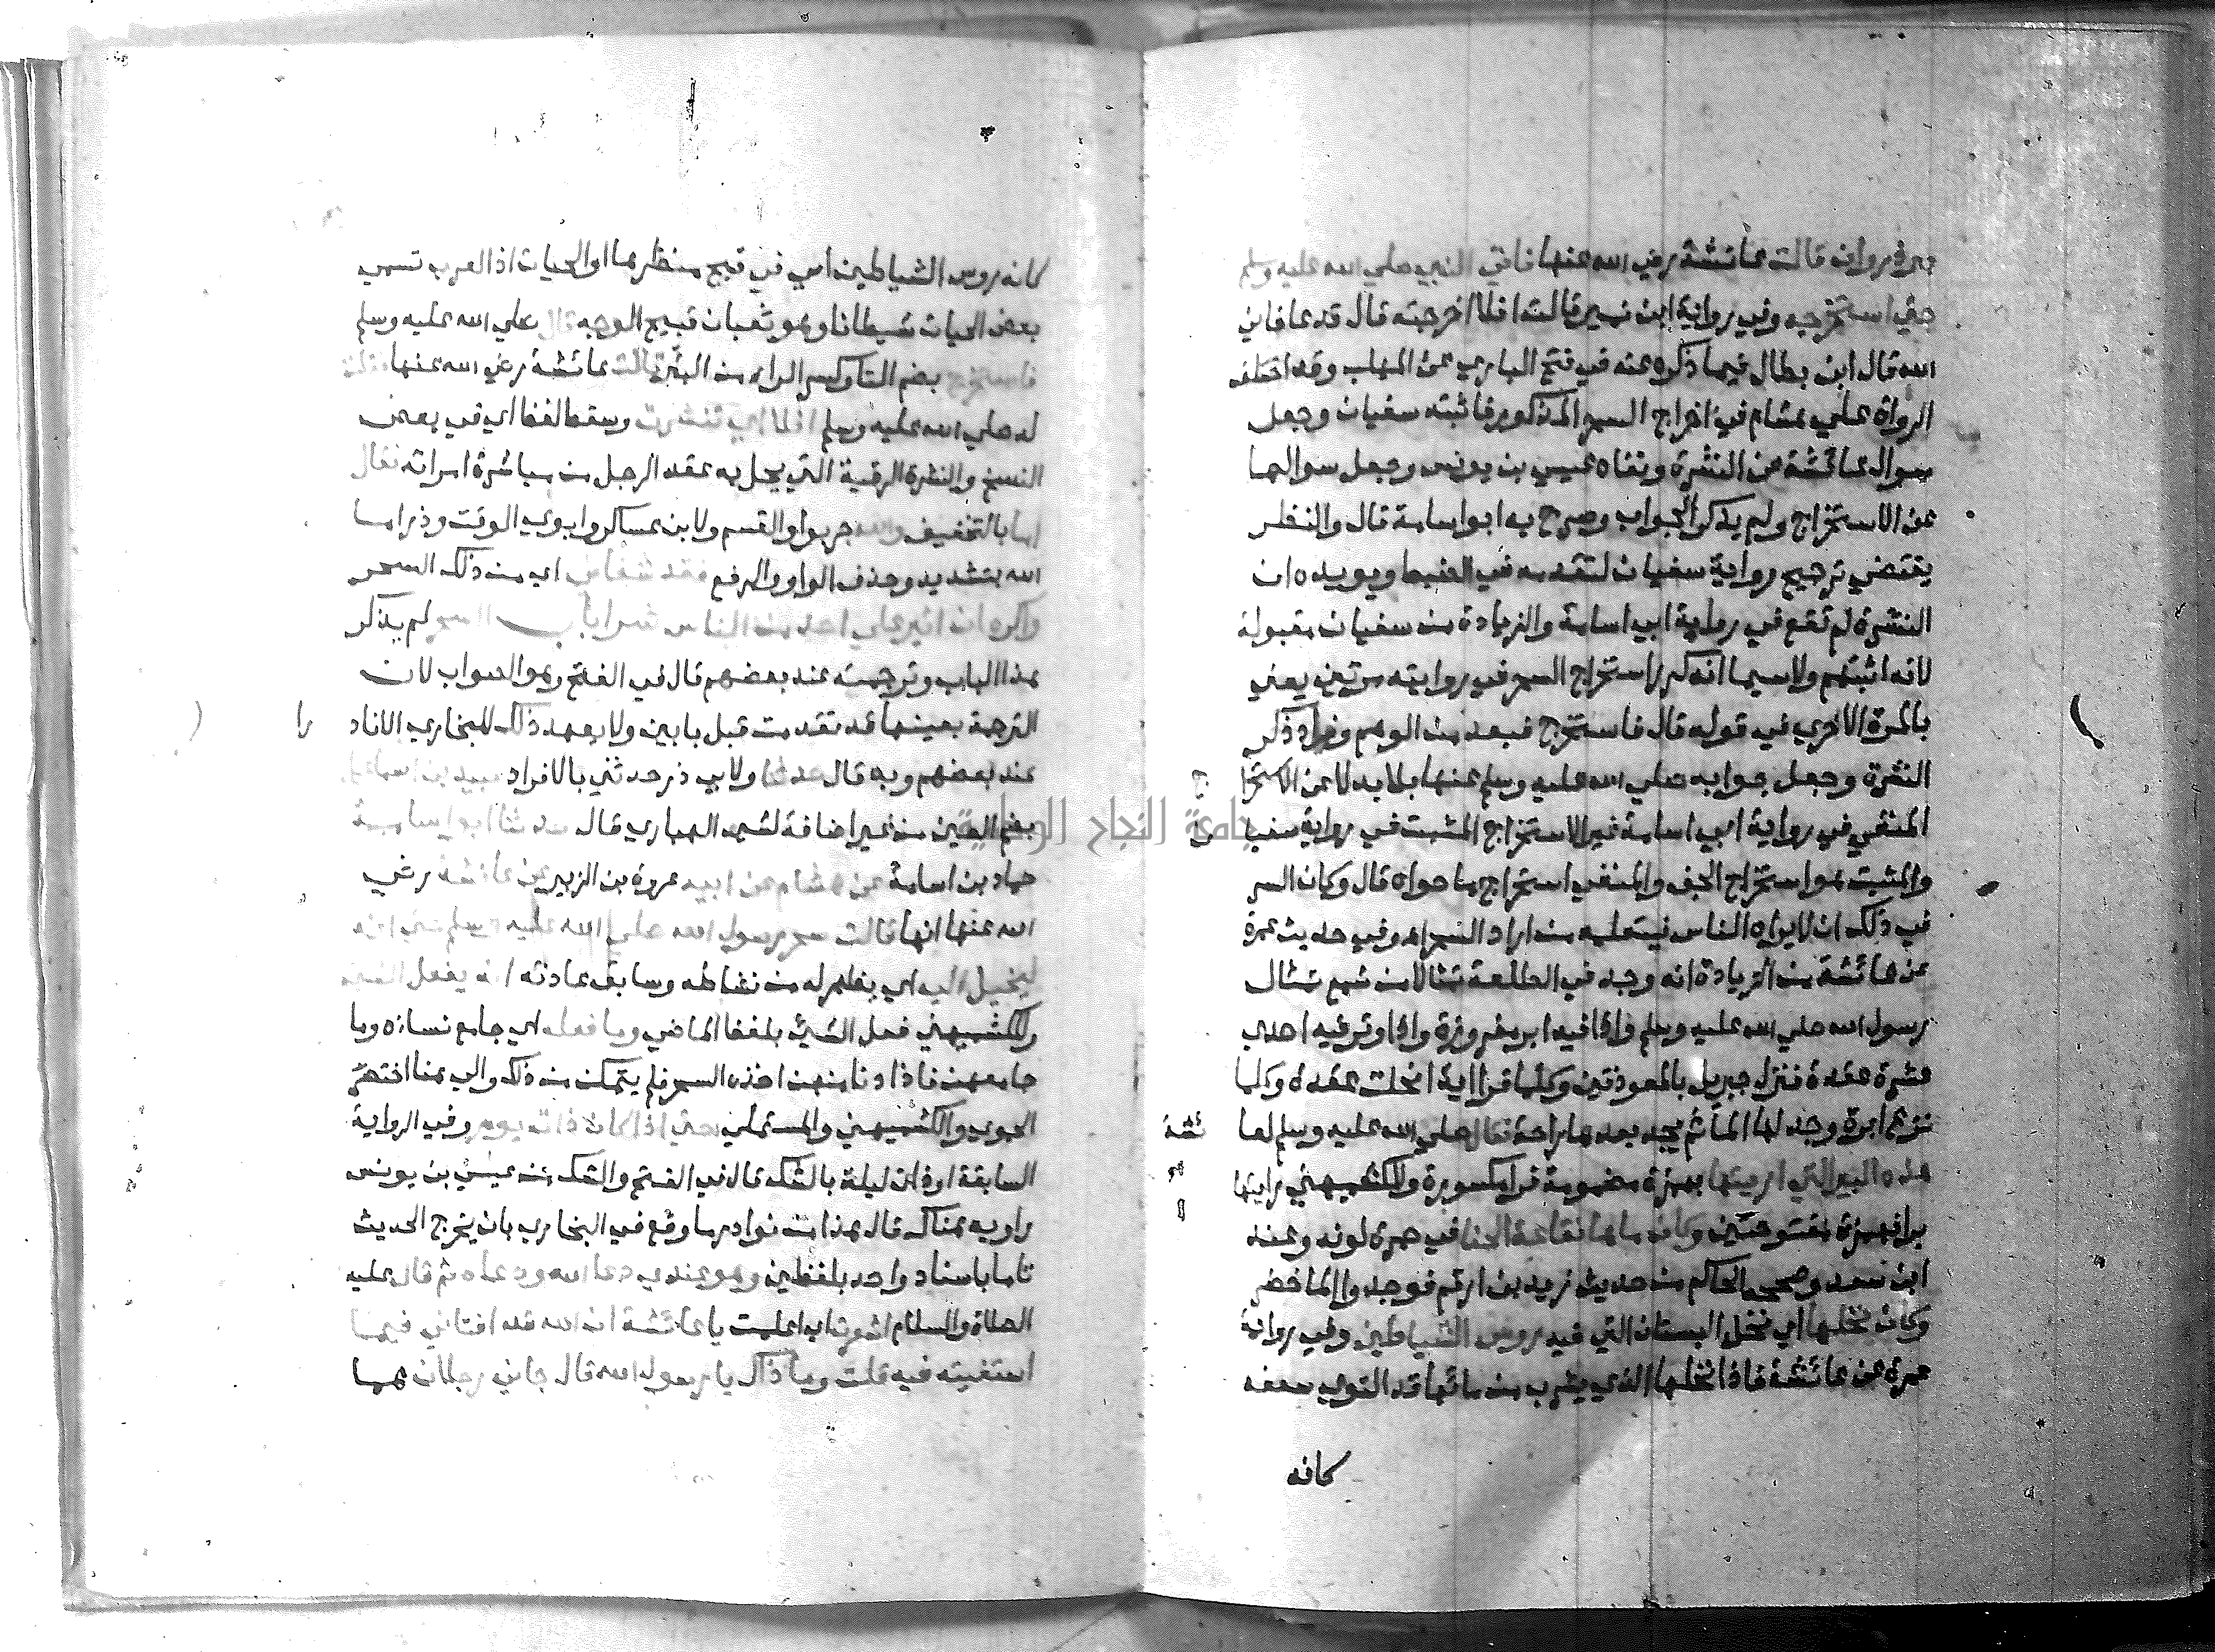 ذروان قالت عائشة رضي الله عنها فاتي النبي صلي الله عليه وسلم
حتي استخرجه وفي رواية ابن نمير قالت افلا اخرجته قال قد عافاني
الله قال ابن بطال فيما ذكره عنه في فتح الباري عن المهلب وقد اختلف
الرواة علي هشام في اخراج السحر المذكور فاثبته سفيان وجعل
سوال عائشة عن النشرة ونفاه عيسي بن يونس وجعل سوالها
عن الاستخراج ولم يذكر الجواب وصرح به ابو اسامة قال والنظر
يقتضي ترجيح رواية سفيان لتقدمه في الضبط ويويده ان
النشرة لم تقع في رواية ابي اسامة والزيادة من سفيان مقبولة
لانه اثبتهم ولاسيما انه كرر استخراج السحر في روايته مرتين يعني
بالمرة الاخري في قوله قال فاستخرج فبعد من الوهم وزاد ذكر
النشرة وجعل جوابه صلي الله عليه وسلم عنها بلا بدلا عن الاستخراج
المنفي في رواية ابي اسامة غير الاستخراج المثبت في رواية سفيان
والمثبت هو استخراج الجف والمنفي استخراج ما حواه قال وكان السر
في ذلك ان لا يراه الناس فيتعلمه من اراد السحر اه وفي حديث عمرة
عن عائشة من الزيادة انه وجد في الطلعة تمثالا من شمع تمثال
رسول الله صلي الله عليه وسلم واذا فيه ابر مغروزة واذا وتر فيه احدي
عشرة عقدة فنزل جبريل بالمعوذتين وكلما قرا اية انحلت عقدة وكلما
نزع ابرة وجد لها الما ثم يجد بعدها راحة فقال صلي الله عليه وسلم لعائشة
هذه البير التي اريتها بهمزة مضمومة فرا مكسورة وللكشميهني رايتها
برا فهمزة مفتوحتين وكان ماها نقاعة الحنا في حمرة لونه وعند
ابن سعد وصححه الحاكم من حديث زيد بن ارقم فوجدوا الما اخضر
وكان نخلها اي نخل البستان التي فيه روس الشياطين وفي رواية
عمرة عن عائشة فاذا نخلها الذي يشرب من مائها قد التوي سعفه
كانه
كانه روس الشياطين اي في قبح منظرها او الحيات اذ العرب تسمي
بعض الحيات شيطانا وهو ثعبان قبيح الوجه قال صلي الله عليه وسلم
فاستخرج بضم التا وكسر الراء من البئر قالت عائشة رضي الله عنها فقلت
له صلي الله عليه وسلم افلا اي تنشرت وسقط لفظ اي في بعض
النسخ والنشرة الرقية التي يحل بها عقد الرجل من مباشرة امراته فقال
اما بالتخفيف والله جر بواو القسم ولابن عساكر وابوي الوقت وذر اما
الله بتشديد وحذف الواو والرفع فقد شفاني اي من ذلك السحر
واكره ان اثير علي احد من الناس شرا باب السحر لم يذكر
هذا الباب وترجمته عند بعضهم قال في الفتح وهو الصواب لان
الترجمة بعينها قد تقدمت قبل بابين ولا يعهد ذلك للبخاري الا نادرا
عند بعضهم وبه قال حدثنا ولابي ذر حدثني بالافراد عبيد بن اسماعيل
بضم العين من غير اضافة لشي الهباري قال حدثنا ابو اسامة
حماد بن اسامة عن هشام عن ابيه عروة بن الزبير عن عائشة رضي
الله عنها انها قالت سحر رسول الله صلي الله عليه وسلم حتي انه
ليخيل اليه اي يظهر له من نشاطه وسابق عادته انه يفعل الشي
وللكشميهني فعل الشيء بلفظ الماضي وما فعله اي جامع نساءه وما
جامعهن فاذا دنا منهن اخذه السحر فلم يتمكن من ذلك والي هنا اختصر
الحموي والكشميهني والمستملي حتي اذا كان ذات يوم وفي الرواية
السابقة او ذات ليلة بالشك قال في الفتح والشك من عيسي بن يونس
راويه هناك قال هذا من نوادر ما وقع في البخاري بان يخرج الحديث
تاما باسناد واحد بلفظين وهو عندي دعا الله ودعاه ثم قال عليه
الصلاة والسلام اشعرت اي اعلمت يا عائشة ان الله قد افتاني فيما
استفتيته فيه قلت وما ذاك يا رسول الله قال جاني رجلان هما
جامعة النجاح الوطنية